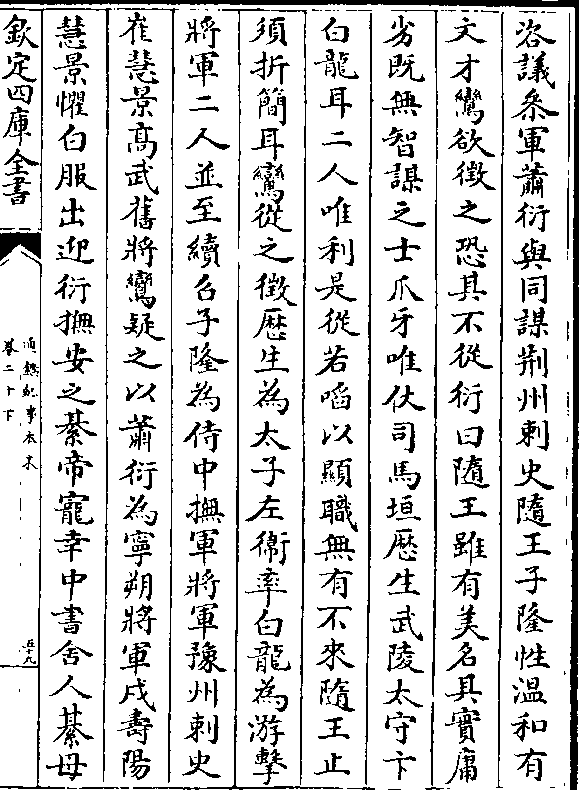 咨議叅軍蕭衍與同謀荆州刺史隨王子隆性温和有
文才鸞欲徴之恐其不從衍曰隨王雖有美名其實庸
劣既無智謀之士爪牙唯仗司馬垣歴生武陵太守卞
白龍耳二人唯利是從若啗以顯職無有不來隨王止
須折簡耳鸞從之徴歴生為太子左衛率白龍為游擊
將軍二人並至續召子隆為侍中撫軍將軍豫州刺史
崔慧景髙武舊將鸞疑之以蕭衍為寧朔將軍戍壽陽
慧景懼白服出迎衍撫安之綦帝寵幸中書舍人綦母
欽定四庫全書
通鑑紀事本末
卷二十下
五十九